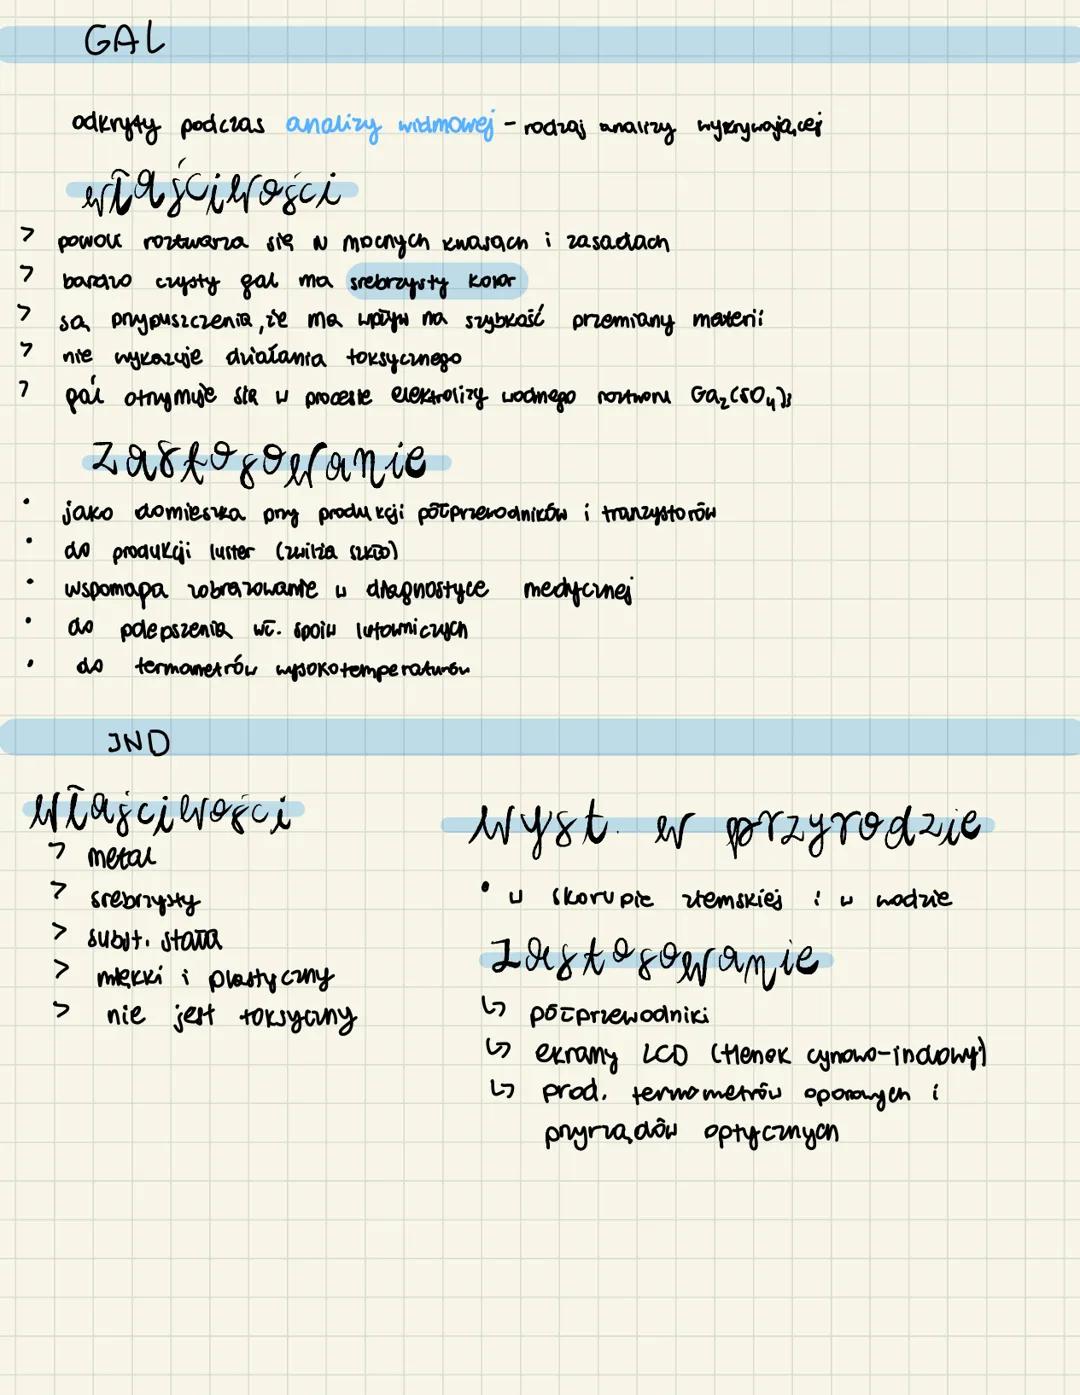 GAL
odkryty podczas analizy widmowej - rodzaj analizy wykrywającej
właściwości
> powoli roztwarza się w mocnych kwasach i zasadach
> bardzo czysty gal ma srebrzysty kolor
> są przypuszczenia, że ma wpływ na szybkość przemiany materii
> nie wykazuje działania toksycznego
> gal otrzymuje się w procesie elektrolizy wodnego roztworu Ga₂(SO₄)₃
Zastosowanie
• jako domieszka przy produkcji półprzewodników i tranzystorów
• do produkcji luster (zwilża szkło)
• wspomaga zobrazowanie w diagnostyce medycznej
• do polepszenia wł. spoiw lutowniczych
• do termometrów wysokotemperaturow
IND
Właściwości
> metal
> srebrzysty
> subst. stała
> miękki i plastyczny
> nie jest toksyczny
Wyst. w przyrodzie
• w skorupie ziemskiej i w wodzie
Zastosowanie
↳ półprzewodniki
↳ ekrany LCD (tlenek cynowo-indowy)
↳ prod. termometrów oporowych i
przyrządów optycznych